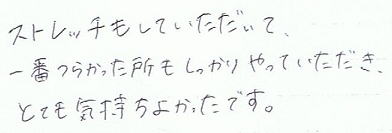 ストレッチもしていただいて、
一番つらかった所もしっかりやっていただき、
とても気持ちよかったです。